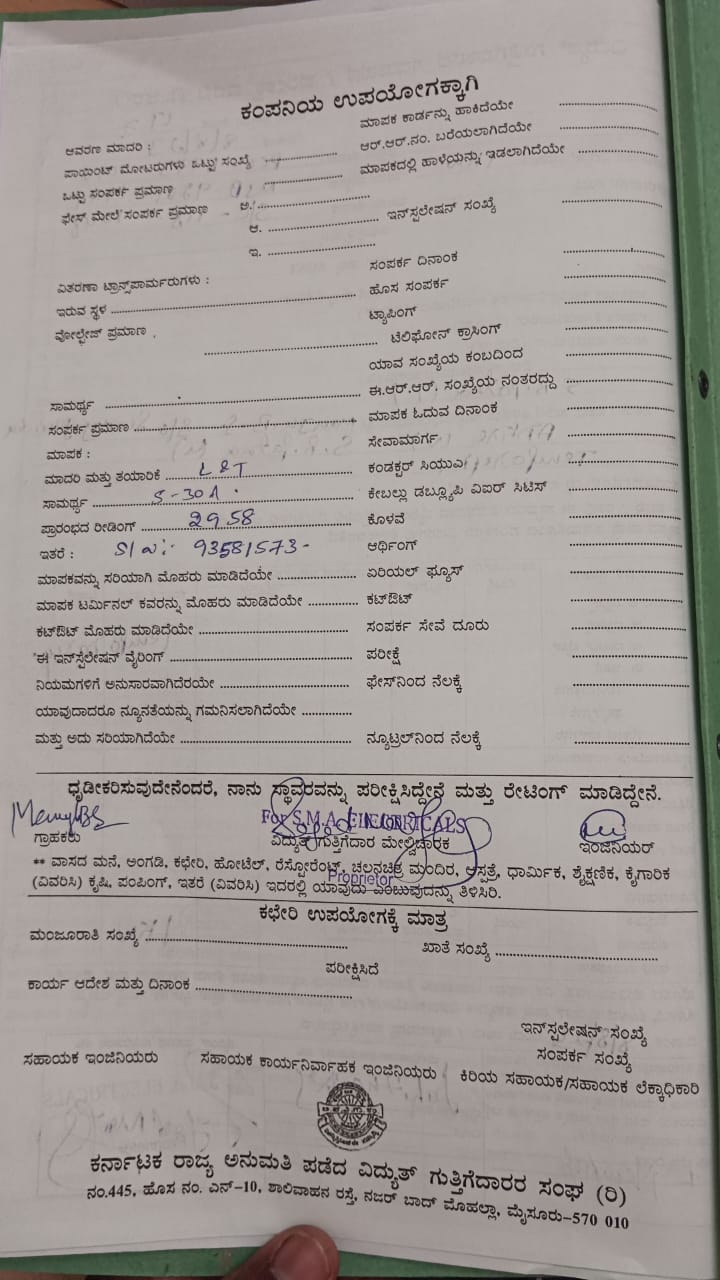 ಕಂಪನಿಯ ಉಪಯೋಗಕ್ಕಾಗಿ
ಆವರಣ ಮಾದರಿ :
ಪಾಯಿಂಟ್ ಮೋಟರುಗಳು ಒಟ್ಟು ಸಂಖ್ಯೆ
ಒಟ್ಟು ಸಂಪರ್ಕ ಪ್ರಮಾಣ
ಫೇಸ್ ಮೇಲೆ ಸಂಪರ್ಕ ಪ್ರಮಾಣ ಅ.
ಆ.
ಇ.
ವಿತರಣಾ ಟ್ರಾನ್ಸ್‌ಪಾರ್ಮರುಗಳು :
ಇರುವ ಸ್ಥಳ
ವೋಲ್ಟೇಜ್ ಪ್ರಮಾಣ
ಸಾಮರ್ಥ್ಯ
ಸಂಪರ್ಕ ಪ್ರಮಾಣ
ಮಾಪಕ :
ಮಾದರಿ ಮತ್ತು ತಯಾರಿಕೆ L&T
ಸಾಮರ್ಥ್ಯ 5-30A
ಪ್ರಾರಂಭದ ರೀಡಿಂಗ್ 2958
ಇತರೆ : 93581573-
ಮಾಪಕವನ್ನು ಸರಿಯಾಗಿ ಮೊಹರು ಮಾಡಿದೆಯೇ
ಮಾಪಕ ಟರ್ಮಿನಲ್ ಕವರನ್ನು ಮೊಹರು ಮಾಡಿದೆಯೇ
ಕಟ್‌ಔಟ್ ಮೊಹರು ಮಾಡಿದೆಯೇ
ಈ ಇನ್‌ಸ್ಟಲೇಷನ್ ವೈರಿಂಗ್
ನಿಯಮಗಳಿಗೆ ಅನುಸಾರವಾಗಿದೆರಯೇ
ಯಾವುದಾದರೂ ನ್ಯೂನತೆಯನ್ನು ಗಮನಿಸಲಾಗಿದೆಯೇ
ಮತ್ತು ಅದು ಸರಿಯಾಗಿದೆಯೇ
ಮಾಪಕ ಕಾರ್ಡನ್ನು ಹಾಕಿದೆಯೇ
ಆರ್.ಆರ್.ನಂ. ಬರೆಯಲಾಗಿದೆಯೇ
ಮಾಪಕದಲ್ಲಿ ಹಾಳೆಯನ್ನು ಇಡಲಾಗಿದೆಯೇ
ಇನ್‌ಸ್ಟಲೇಷನ್ ಸಂಖ್ಯೆ
ಸಂಪರ್ಕ ದಿನಾಂಕ
ಹೊಸ ಸಂಪರ್ಕ
ಟ್ಯಾಪಿಂಗ್
ಟೆಲಿಫೋನ್ ಕ್ರಾಸಿಂಗ್
ಯಾವ ಸಂಖ್ಯೆಯ ಕಂಬದಿಂದ
ಈ.ಆರ್.ಆರ್. ಸಂಖ್ಯೆಯ ನಂತರದ್ದು
ಮಾಪಕ ಓದುವ ದಿನಾಂಕ
ಸೇವಾಮಾರ್ಗ
ಕಂಡಕ್ಟರ್ ಸಿಯುಎ
ಕೇಬಲ್ಲು ಡಬ್ಲ್ಯೂಪಿ ವಿಐರ್ ಸಿಟಿಸ್
ಕೊಳವೆ
ಆರ್ಥಿಂಗ್
ಏರಿಯಲ್ ಫ್ಯೂಸ್
ಕಟ್‌ಔಟ್
ಸಂಪರ್ಕ ಸೇವೆ ದೂರು
ಪರೀಕ್ಷೆ
ಫೇಸ್‌ನಿಂದ ನೆಲಕ್ಕೆ
ನ್ಯೂಟ್ರಲ್‌ನಿಂದ ನೆಲಕ್ಕೆ
ಧೃಡೀಕರಿಸುವುದೇನೆಂದರೆ, ನಾನು ಸ್ಥಾವರವನ್ನು ಪರೀಕ್ಷಿಸಿದ್ದೇನೆ ಮತ್ತು ರೇಟಿಂಗ್ ಮಾಡಿದ್ದೇನೆ.
For S.M.A. ELECTRICALS
ಗ್ರಾಹಕರು ವಿದ್ಯುತ್ ಗುತ್ತಿಗೆದಾರ ಮೇಲ್ವಿಚಾರಕ ಇಂಜಿನಿಯರ್
** ವಾಸದ ಮನೆ, ಅಂಗಡಿ, ಕಛೇರಿ, ಹೋಟೆಲ್, ರೆಸ್ಟೋರೆಂಟ್, ಚಲನಚಿತ್ರ ಮಂದಿರ, ಆಸ್ಪತ್ರೆ, ಧಾರ್ಮಿಕ, ಶೈಕ್ಷಣಿಕ, ಕೈಗಾರಿಕ
Proprietor
(ವಿವರಿಸಿ) ಕೃಷಿ, ಪಂಪಿಂಗ್, ಇತರೆ (ವಿವರಿಸಿ) ಇದರಲ್ಲಿ ಯಾವುದು ಎಂಬುವುದನ್ನು ತಿಳಿಸಿರಿ.
ಕಛೇರಿ ಉಪಯೋಗಕ್ಕೆ ಮಾತ್ರ
ಮಂಜೂರಾತಿ ಸಂಖ್ಯೆ ಖಾತೆ ಸಂಖ್ಯೆ
ಪರೀಕ್ಷಿಸಿದೆ
ಕಾರ್ಯ ಆದೇಶ ಮತ್ತು ದಿನಾಂಕ
ಇನ್‌ಸ್ಟಲೇಷನ್ ಸಂಖ್ಯೆ
ಸಂಪರ್ಕ ಸಂಖ್ಯೆ
ಸಹಾಯಕ ಇಂಜಿನಿಯರು ಸಹಾಯಕ ಕಾರ್ಯನಿರ್ವಾಹಕ ಇಂಜಿನಿಯರು ಕಿರಿಯ ಸಹಾಯಕ/ಸಹಾಯಕ ಲೆಕ್ಕಾಧಿಕಾರಿ
ಕರ್ನಾಟಕ ರಾಜ್ಯ ಅನುಮತಿ ಪಡೆದ ವಿದ್ಯುತ್ ಗುತ್ತಿಗೆದಾರರ ಸಂಘ (ರಿ)
ನಂ.445, ಹೊಸ ನಂ. ಎನ್-10, ಶಾಲಿವಾಹನ ರಸ್ತೆ, ನಜರ್ ಬಾದ್ ಮೊಹಲ್ಲಾ, ಮೈಸೂರು-570 010